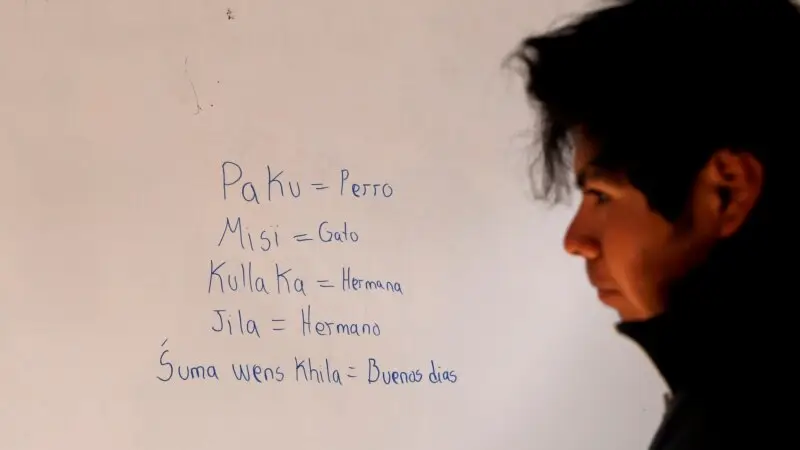 Paku = Perro
Misi = Gato
Kullaka = Hermana
Jila = Hermano
Śuma wens Khila = Buenos dias